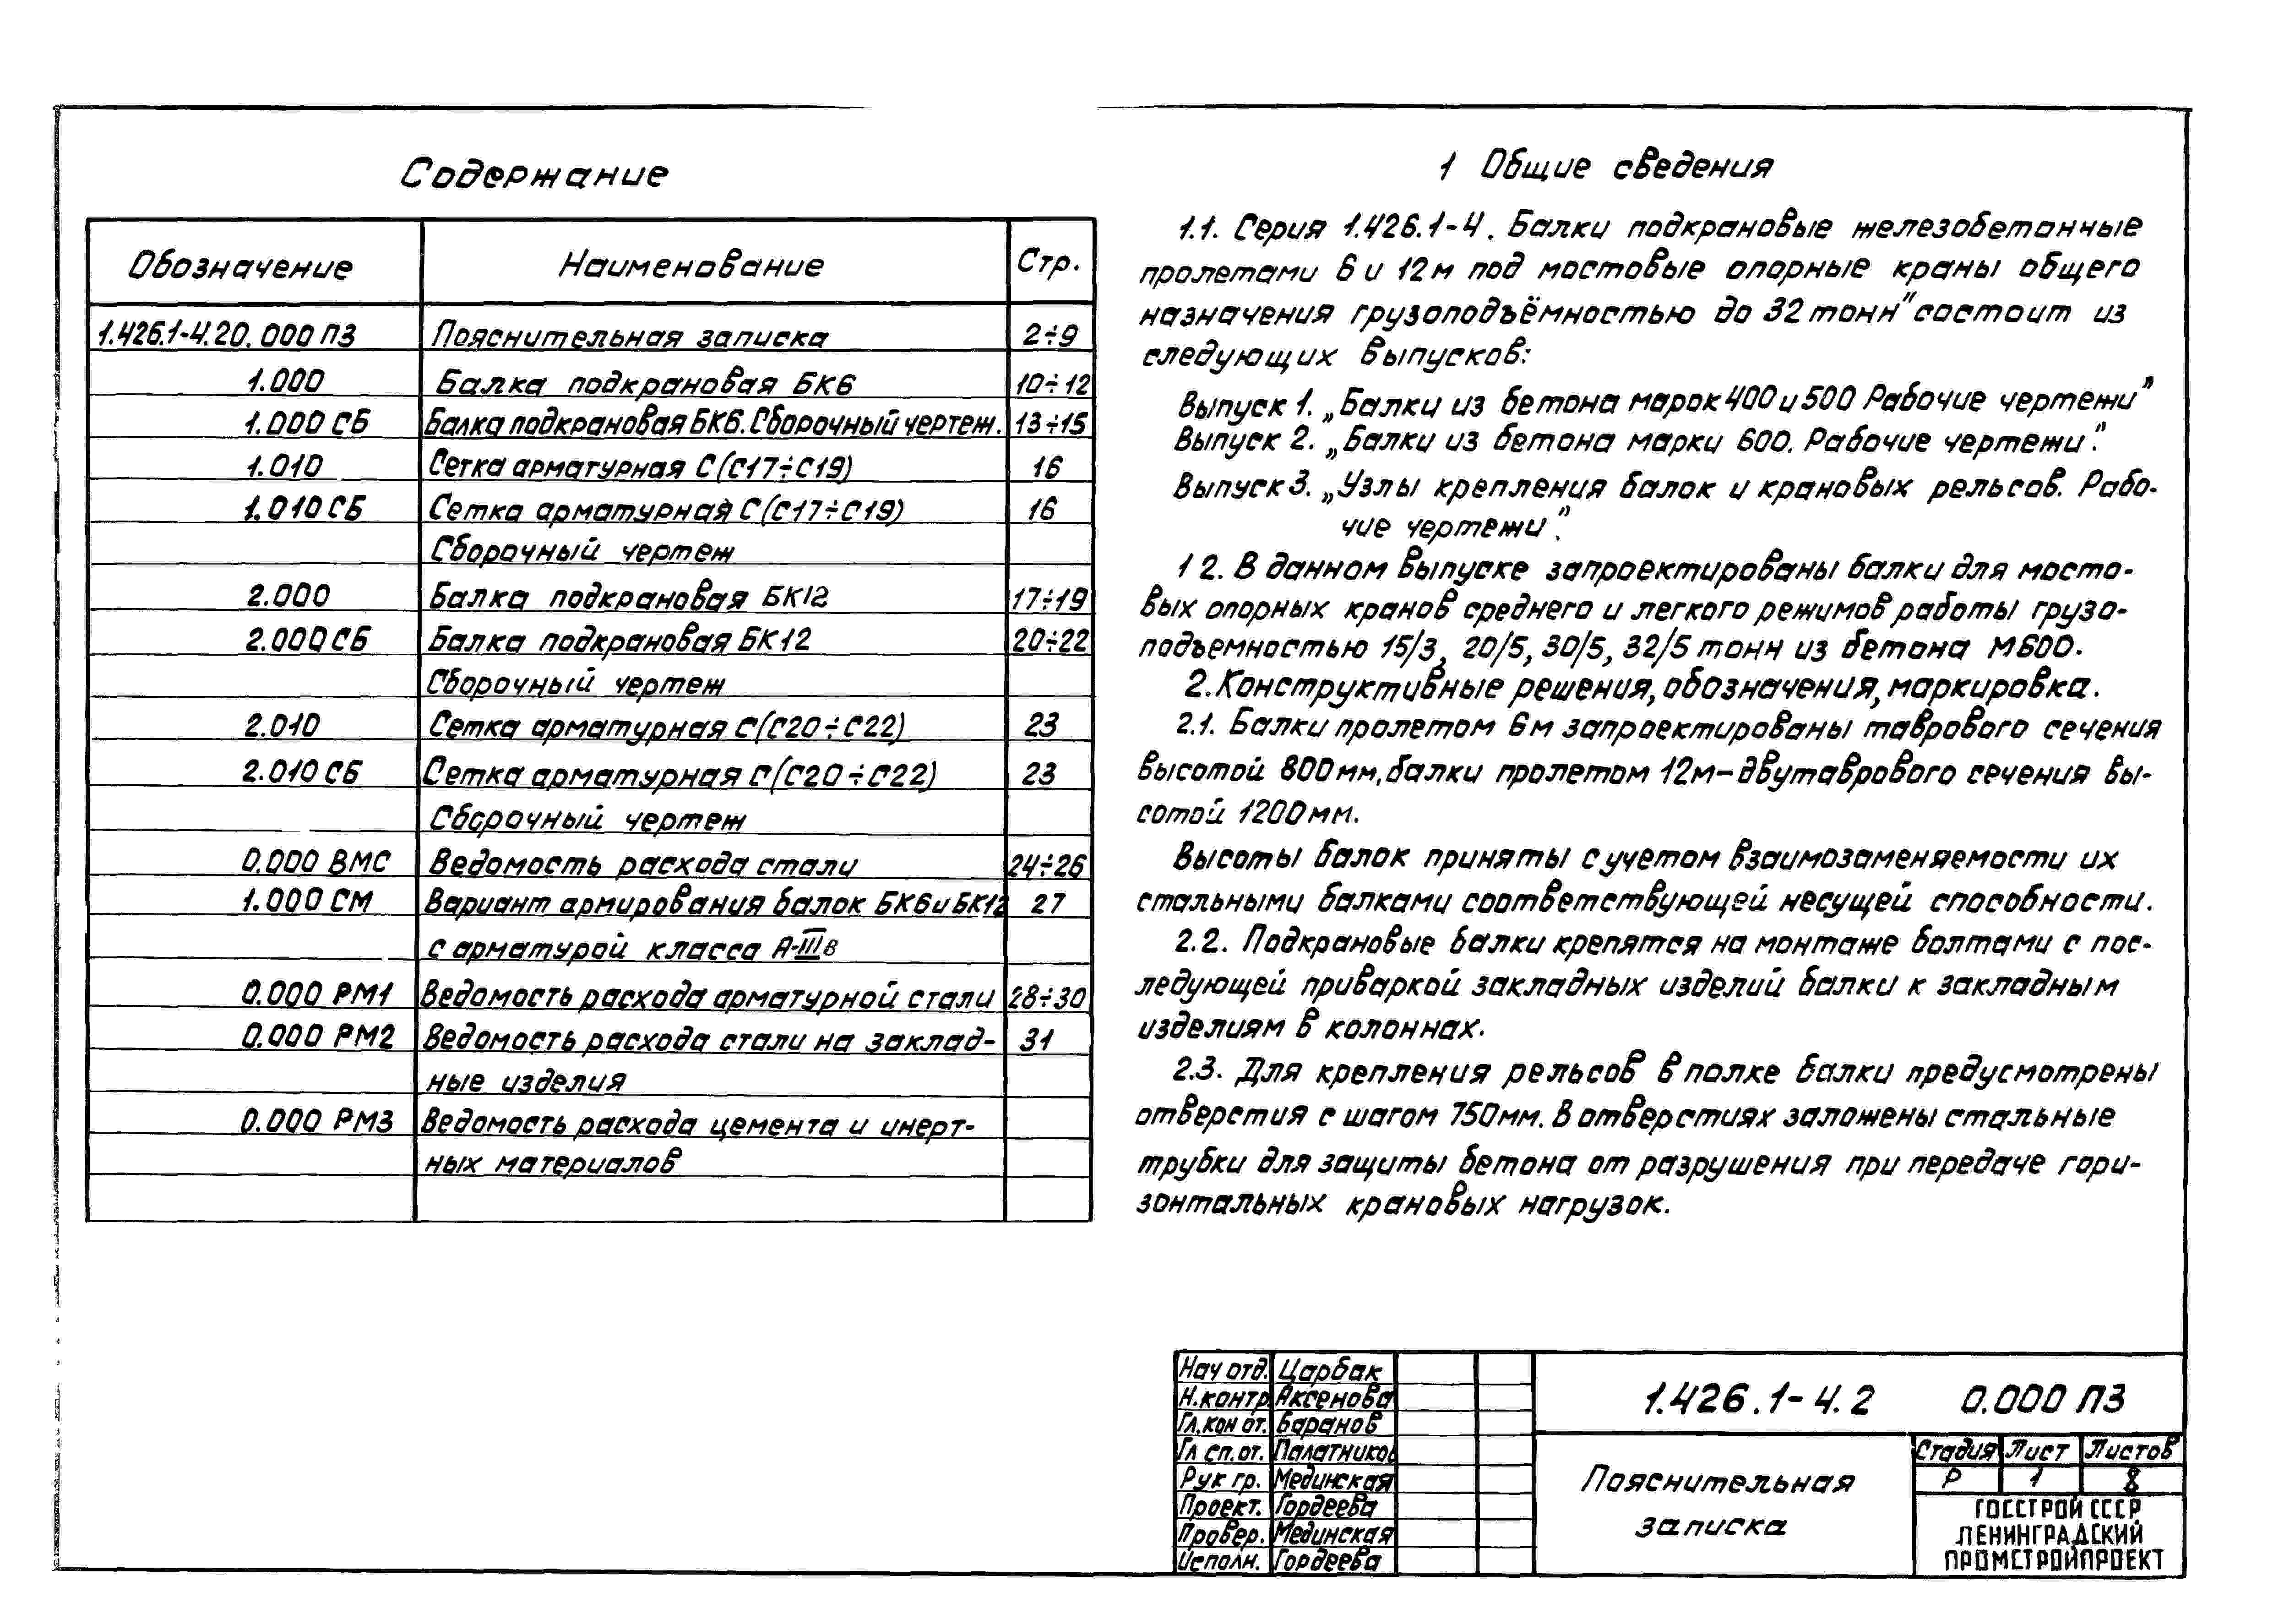 Содержание
Обозначение Наименование Стр.
1.426.1-4.20.000 ПЗ Пояснительная записка 2÷9
1.000 Балка подкрановая БК6 10÷12
1.000 СБ Балка подкрановая БК6. Сборочный чертеж. 13÷15
1.010 Сетка арматурная С (С17÷С19) 16
1.010 СБ Сетка арматурная С (С17÷С19) 16
Сборочный чертеж
2.000 Балка подкрановая БК12 17÷19
2.000 СБ Балка подкрановая БК12 20÷22
Сборочный чертеж
2.010 Сетка арматурная С (С20÷С22) 23
2.010 СБ Сетка арматурная С (С20÷С22) 23
Сборочный чертеж
0.000 ВМС Ведомость расхода стали 24÷26
1.000 СМ Вариант армирования балок БК6 и БК12 27
с арматурой класса А-IIIв
0.000 РМ1 Ведомость расхода арматурной стали 28÷30
0.000 РМ2 Ведомость расхода стали на заклад- 31
ные изделия
0.000 РМ3 Ведомость расхода цемента и инерт-
ных материалов
1 Общие сведения
1.1. Серия 1.426.1-4. Балки подкрановые железобетонные
пролетами 6 и 12 м под мостовые опорные краны общего
назначения грузоподъёмностью до 32 тонн" состоит из
следующих выпусков:
Выпуск 1. „Балки из бетона марок 400 и 500 Рабочие чертежи"
Выпуск 2. „Балки из бетона марки 600. Рабочие чертежи".
Выпуск 3. „Узлы крепления балок и крановых рельсов. Рабо-
чие чертежи".
1 2. В данном выпуске запроектированы балки для мосто-
вых опорных кранов среднего и легкого режимов работы грузо-
подъемностью 15/3, 20/5, 30/5, 32/5 тонн из бетона М600.
2. Конструктивные решения, обозначения, маркировка.
2.1. Балки пролетом 6 м запроектированы таврового сечения
высотой 800 мм, балки пролетом 12 м – двутаврового сечения вы-
сотой 1200 мм.
Высоты балок приняты с учетом взаимозаменяемости их
стальными балками соответствующей несущей способности.
2.2. Подкрановые балки крепятся на монтаже болтами с пос-
ледующей приваркой закладных изделий балки к закладным
изделиям в колоннах.
2.3. Для крепления рельсов в полке балки предусмотрены
отверстия с шагом 750 мм. В отверстиях заложены стальные
трубки для защиты бетона от разрушения при передаче гори-
зонтальных крановых нагрузок.
Нач отд. Царбак
Н.контр. Аксенова
Гл.кон от. Баранов
Гл сп.от. Палатников
Рук гр. Мединская
Проект. Гордеева
Провер. Мединская
Исполн. Гордеева
1.426.1-4.2 0.000 ПЗ
Пояснительная
записка
Стадия Лист Листов
Р 1 8
ГОССТРОЙ СССР
ЛЕНИНГРАДСКИЙ
ПРОМСТРОЙПРОЕКТ